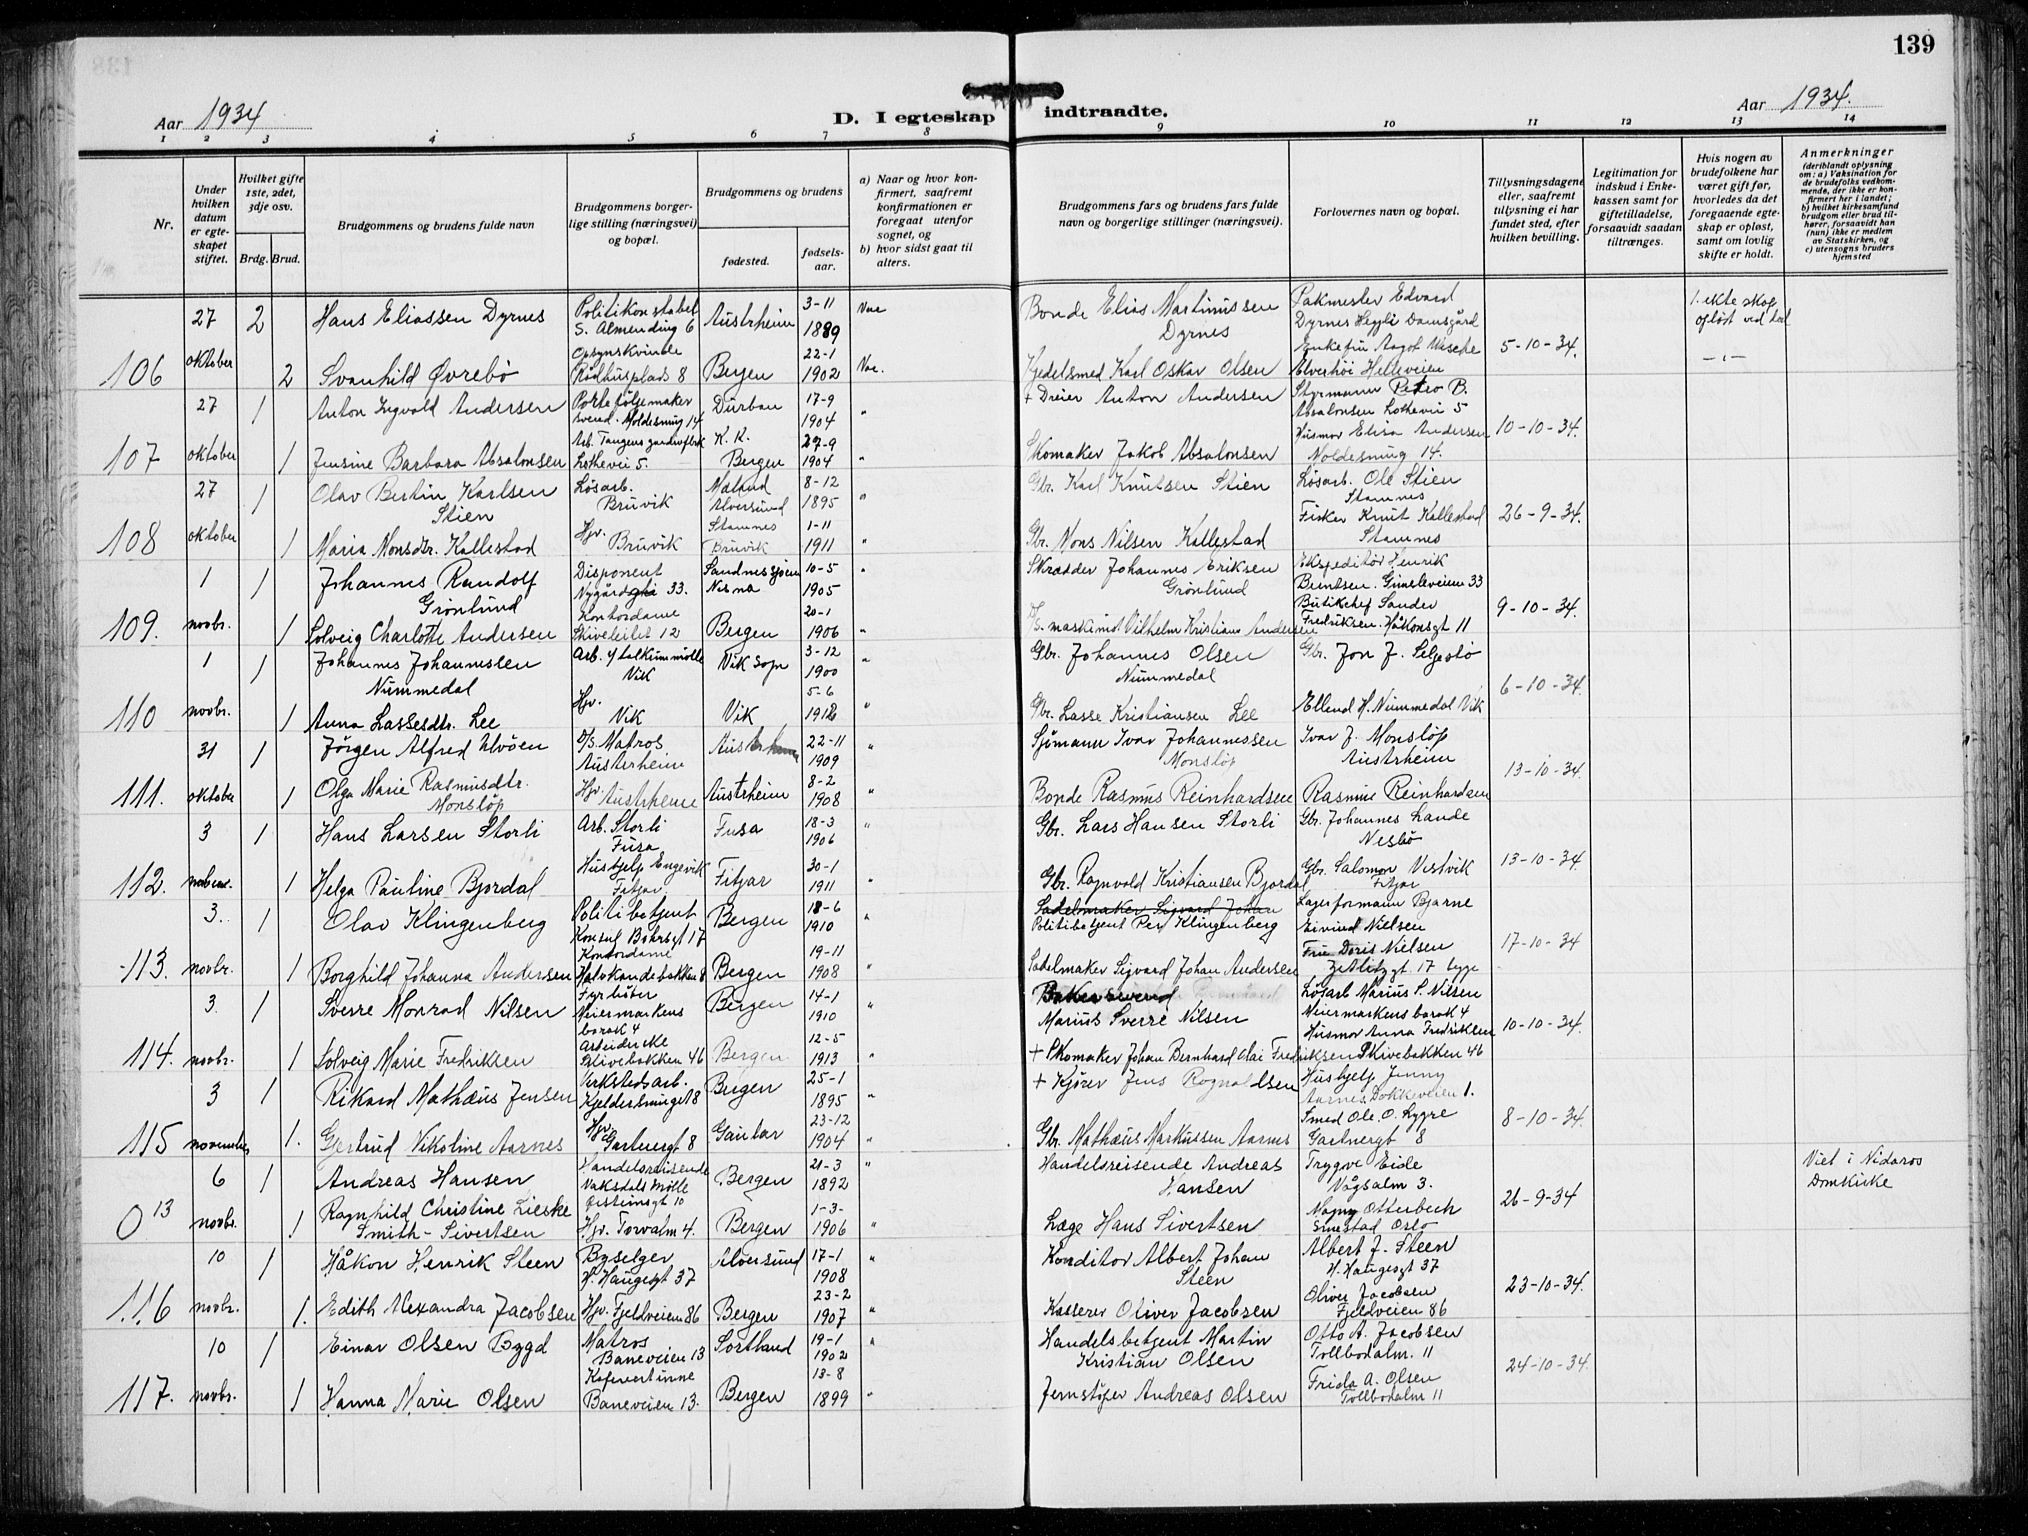 139
Aar 1934
D. I egteskap indtraadte.
Aar 1934.
1 2 3 4 5 6 7 8 9 10 11 12 13 14
Nr.
Under hvilken datum er egteskapet stiftet.
Hvilket gifte 1ste, 2det, 3dje osv.
Brdg. Brud.
Brudgommens og brudens fulde navn
Brudgommens borgerlige stilling (næringsvei) og bopæl.
Brudgommens og brudens
fødested.
fødselsaar.
a) Naar og hvor konfirmert, saafremt konfirmationen er foregaat utenfor sognet, og
b) hvor sidst gaat til alters.
Brudgommens fars og brudens fars fulde navn og borgerlige stillinger (næringsvei).
Forlovernes navn og bopæl.
Tillysningsdagene eller, saafremt tillysning ei har fundet sted, efter hvilken bevilling.
Legitimation for indskud i Enkekassen samt for giftetilladelse, forsaavidt saadan tiltrænges.
Hvis nogen av brudefolkene har været gift før, hvorledes da det foregaaende egteskap er opløst, samt om lovlig skifte er holdt.
Anmerkninger
(deriblandt oplysning om: a) Vaksination for de brudefolks vedkommende, der ikke er konfirmert her i landet; b) hvilket kirkesamfund brudgom eller brud tilhører, forsaavidt han (hun) ikke er medlem av Statskirken, og c) utensogns bruders hjemsted
27 2 Hans Eliassen Dyrnes Politikonstabel S. Almending 6 Austrheim 3-11 1889 Vac Bonde Elias Martinussen Dyrnes Pakmester Edvard Dyrnes Damsgård 1. ekte skap opløst ved død
106 oktober 2 Svanhild Øvrebø Opsynskvinde Rådhusplads 8 Bergen 22-1 1902 Vac. Gjedelsmed Karl Oskar Olsen Enkefru Aagot Elverhöi Helleveien 5-10-34. -"-
27 1 Anton Ingvald Andersen Portefølgemaker svend. Moldesmug 14 Durban 17-9 1904 " + Dreier Anton Andersen Styrmann Petro B. Absalonsen Lotheveie 5
107 oktober 1 Jensine Barbara Absalonsen Arb. Tangens Lotheveie 5. K. K. Bergen 29-9 1904 " Skomaker Jakob Absalonsen Husmor Elisa Andersen Moldesmug 14. 10-10-34.
27 1 Olav Bertin Karlsen Stien Løsarb. Bruvik Mæland Alversund 8-12 1895 " Gbr. Karl Knutsen Stien Løsarb. Ole Stien Stamnes
108 oktober 1 Maria Monsdtr. Kallestad Hjv. Bruvik Stamnes Bruvik 1-11 1911 " Gbr. Mons Nilsen Kallestad Fisker Knut Kallestad Stamnes 26-9-34.
1 1 Johannes Randolf Grønlund Disponent Nygårdsgt 33. Sandnessjøen Nesna 10-5 1905 " Skrædder Johannes Eriksen Grønlund Ekspeditør Henrik Berntsen. Gimleveien 33
109. novbr. 1 Solveig Charlotte Andersen Kontordame Skiveleiet 12 Bergen 20-1 1906 " D/S. maskinist Vilhelm Kristian Andersen Butikchef Sander Fredriksen. Håkonsgt 11 9-10-34.
1 1 Johannes Johannessen Nummedal Arb. v/ talkummølle Vik Vik Sogn 3-12 1900 " Gbr. Johannes Olsen Nummedal Gbr. Jon J. Seljestø
110 novbr. 1 Anna Lassesdtr. Lee Hjv. Vik Vik 5-6 1912 " Gbr. Lasse Kristiansen Lee Ellend H. Nummedal Vik 6-10-34.
31 1 Jørgen Alfred Ulvøen D/S. Matros Austrheim Austrheim 22-11 1909 " Sjømann Ivar Johannessen Monsløp Ivar J. Monsløp Austrheim
111. oktober 1 Olga Marie Rasmusdtr. Monsløp Hjv. Austrheim Austrheim 8-2 1908 " Bonde Rasmus Reinhardsen Rasmus Reinhardsen 13-10-34.
3 1 Hans Larsen Storli Arb. Storli Fusa Fusa 18-3 1906 " Gbr. Lars Hansen Storli Gbr. Johannes Lande Nesbø
112. 1 Helga Pauline Bjordal Hushjelp Engevik Fitjar Fitjar 30-1 1911 " Gbr. Ragnvald Kristiansen Bjordal Gbr. Salomon Vestvik Fitjar 13-10-34.
3. 1 Olav Klingenberg Politibetjent Konsul Børsgt 17 Bergen 18-6 1910 " Sadelmaker Sigvard Johan Politibetjent Per Klingenberg Lagerformann Bjarne Eivind Nielsen
113. novbr. 1 Borghild Johanna Andersen Kontordame Halvkandebakken 8 Bergen 19-11 1908 " Sadelmaker Sigvard Johan Andersen Fru Doris Nielsen Zetlitzgt. 17 17-10-34
3. 1 Sverre Monrad Nilsen Fyrbøter Meiermarkens barak 4 Bergen 14-1 1910 " Bakersvend Marius Sverre Nilsen Løsarb Marius S. Nilsen Meiermarkens barak 4
114. novbr. 1 Solveig Marie Fredriksen Skivebakken 46 Bergen 12-5 1913 " + Skomaker Johan Bernhard Olai Fredriksen Husmor Anna Fredriksen Skivebakken 46 10-10-34.
3 1 Rikard Mathæus Jensen Verkstedsarb. Kjeldersmuget 8 Bergen 25-1 1895 " + Kjører Jens Rognaldsen Hushjelp Jenny Aarnes. Dokkeveien 1.
115 november 1. Gjertrud Nikoline Aarnes Hjv. Gartnergt 8 Gaular 23-12 1904 " Gbr. Mathæus Markussen Aarnes Smed Ole. O. Lygre Gartnergt 8 8-10-34.
6 1 Andreas Hansen Handelsreisende Vaksdals Mølle Øisteinsgt 10 Bergen 21-3 1892 " Handelsreisende Andreas Hansen Trygve Eide Vågsalm 3. Viet i Nidaros Domkirke
0 13 novbr. 1 Ragnhild Christine Lieske Smith-Sivertsen Hjv. Torvalm 4. Bergen 1-3- 1906 " Læge Hans Sivertsen Magny Otterbech Smestad Oslo 26-9-34
10 1 Håkon Henrik Steen Byselger H. Haugesgt 37 Alversund 17-1 1908 " Konditor Albert Johan Steen Albert J. Steen H. Haugesgt 37
116 novbr. 1. Edith Alexandra Jacobsen Hjv. Fjeldveien 86 Bergen 23-2 1907 " Kasserer Oliver Jacobsen Oliver Jacobsen Fjeldveien 86 23-10-34.
10 1 Einar Olsen Bygd Matros Baneveien 13 Sortland 19-1 1902 " Handelsbetjent Martin Kristian Olsen Otto A. Jacobsen Tollbodalm. 11
117. novbr. 1 Hanna Marie Olsen Kafevertinne Baneveien 13. Bergen 13-8 1899 " Jernstøper Andreas Olsen Frida A. Olsen Tollbodalm 11 24-10-34.